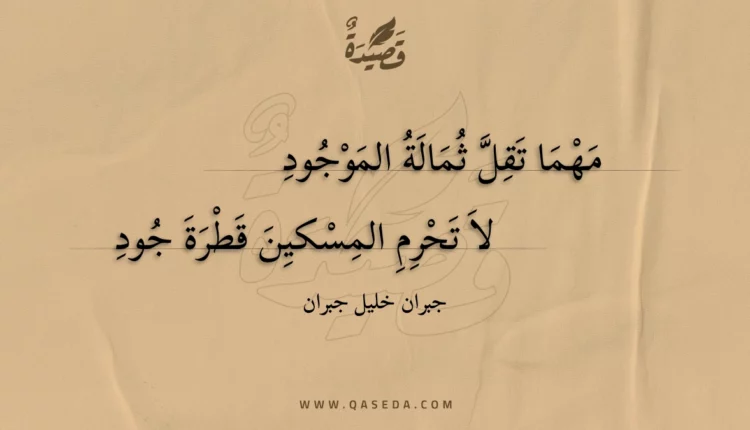 قَصِيْدَةٌ
مَهْمَا تَقِلَّ ثُمَالَةُ المَوْجُودِ
لاَ تَحْرِمِ المِسْكِينَ قَطْرَةَ جُودِ
جبران خليل جبران
WWW.QASEDA.COM